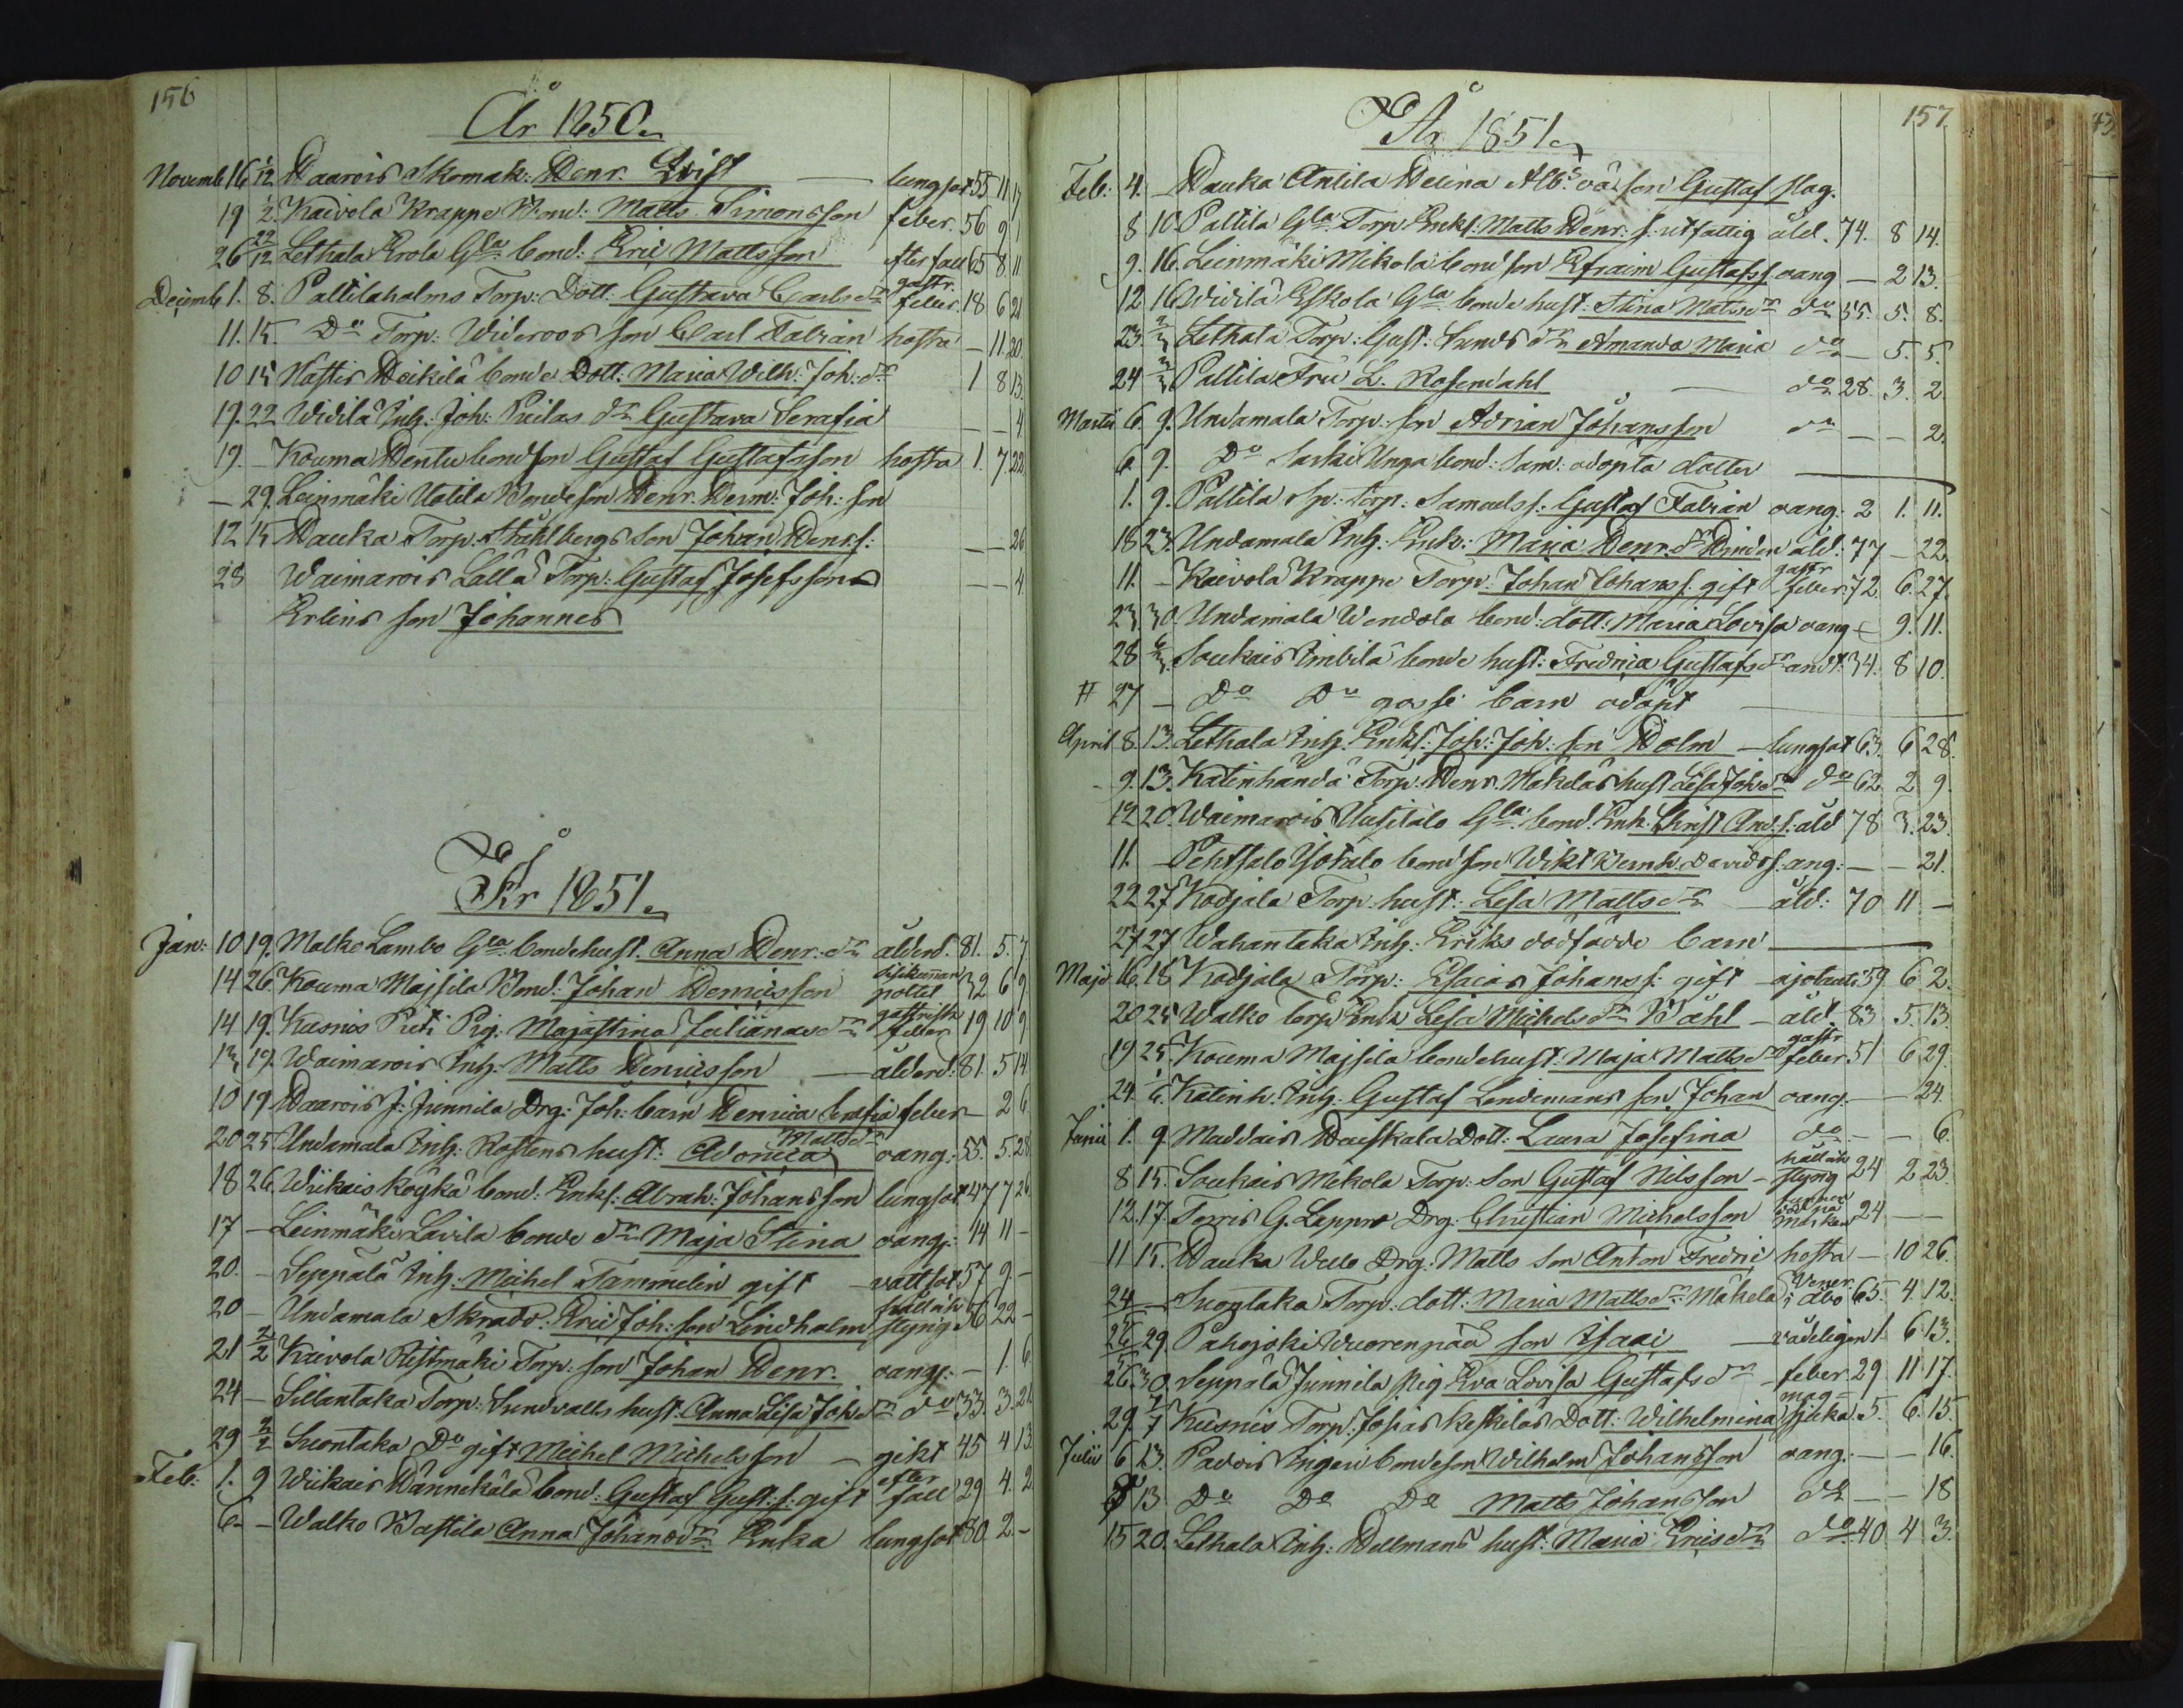 156
År 1850.
Novemb 16 1/12 Haarois Skomak: Henr. Qvist — lungsot 55 11 17
19 1/2. Kaivola Krappe Bond: Matts Simonsson feber. 56 9 1
26 22/12 Lethala Erola Gla bond: Eric Mattsson efter fall 65 8. 11
Decemb 1. 8. Paltilaholms Torp: Dott: Gustava Carlsdr gastr. feber 18 6 21
11. 15. Do Torp: Wideroos son Carl Fabian hosta — 11 20.
10 15 Nästis Heikilä bonde Dott: Maria Wilh: Joh: dr 1 8 13.
19. 22 Widilä Inh: Joh: Prilas dr Gustava Serafia — — 4
19. — Kouma Hentu bondson Gustaf Gustafsson hosta 1. 7. 22
— 29. Leinmäki Uotila Bondeson Henr. Herm: Joh: son
12 15 Hauka Torp. Ståhlbergs son Johan Henrs: — — 26
28 Waimarois Lällä Torp: Gustaf Josefssons — — 4
Erlins son Johannes
År 1851.
Jan: 10 19. Malko Lambo Gla bondehust. Anna Henr. dr ålderd. 81. 5. 7
14 26 Kouma Majsila Bond: Johan Henricsson 32 6 9
14 19. Kusnis Prti Pig. Majastina Julianasdr gastrisk feber 19 10 9
13 19. Waimarois Inh: Matts Henricsson — ålderd: 81. 5 14
10 19 Haarois J: Junnila Drg: Joh: barn Henrica Serafia feber — 2 6
20 25. Undamala Inh: Rostens hust: Adorica Mattsdr oang: 55. 5. 28
18 26. Wiikais Köykä bond: Enkl: Abrah: Johansson lungsot 47 7 26
17 — Leinmäki Lavila bonde dr Maja Stina oang: 14 11 —
20. — Seppälä Inh: Michel Tammelin gift — vattsot 57 9. —
20 — Undamala Skradd: Eric Joh: son Lindholm håll och styng 56 22 —
21 2/2 Kaivola Ristmäki Torp. son Johan Henr. oang: — 1. 6
24 — Sillantaka Torp: Sundvalls hust. Anna Lisa Joh: dr do 33. 3. 21
29 2/2 Suontaka Do gift Michel Michelsson — gikt 45 4 13
Feb: 1. 9 Wiikais Hännikälä bond: Gustaf Gust: s: gift efter fall 29 4. 2
6. — Walko Wastila Anna Johansdr Enka lungsot 80. 2. —
157
År 1851.
Feb: 4. — Hauka Antila Helena Alb:s oä: son Gustaf slag.
8 10 Paltila Gla Torp. Enkl: Matts Henr: s: utfattig åld. 74. 8 14.
9. 16. Leinmäki Mikola bond son Efraim Gustafss. oang — 2 13.
12 16 Widilä Eskola Gla bonde hust: Stina Matsdr do 55. 5. 8.
23. 2/3 Lethala Torp: Gust: Lunds dr Amanda Maria do — 5. 5.
24 2/3 Paltila Fru L. Rosendahl — do 28. 3. 2.
Martii 6. 9. Undamala Torp: son Adrian Johansson do — — 2.
6. 9. Do Sarki Unga bond: Sam: odöpta dotter
1. 9. Paltila Sp: torp: Samuels s: Gustaf Fabian oang. 2 1. 11.
18 23. Undamala Inh: Enk: Maria Henr: dr åld: 77 — 22.
11. — Kaivola Krappe Torp: Johan Johans s. gift gastr feber 72. 6. 27.
23 30. Undamala Wendola bond: dott: Maria Lovisa oang — 9. 11.
28 6/4 Soukais Imbilä bonde hust: Fredrica Gustafsdr andt. 34. 8 10.
# 27 — Do Do gosse barn odöpt
April 8. 13. Lethala Inh: Enkl: Joh: Joh: son Holm — lungsot 63. 6 28.
9. 13. Katinhändä Torp: Henr. Mäkeläs hust Lisa Joh: dr do 62. 2 9.
12 20. Waimarois Uusitalo Gla bond: Enk. Christ And. s. åld 78 3. 23.
11. — Peltsalo Ylötalo bond son Wikt Bernh. Davids s. ang: — — 21.
22 27 Kodjala Torp hust: Lisa Mattsdr — åld: 70 11 —
27 27 Wahantaka Inh: Eriks dödfödde barn
Maji 16. 18 Kodjala Torp: Esaias Johans s: gift — 59 6 2.
20 25 Walko torp: Enk Lisa Michelsdr Wåhl — åld. 83 5. 13.
19 25. Kouma Majsila bondehust: Maja Mattsdr gastr feber 51 6 29.
24 1/6 Katinh: Inh: Gustaf Lindemans son Johan oang. — 24.
Junii 1. 9 Maddais Hauskala Dott: Laura Josefina do — — 6.
8 15. Soukais Mikola Torp: son Gustaf Nilsson — håll och styng 24 2 23.
12. 17. Torris G. Lappro Drg: Christian Michelsson funnen död på marken 24 — —
11 15. Hauka Wille Drg: Matts son Anton Fredric hosta — 10 26.
24 — Suontaka Torp: dott: Maria Mattsdr Mäkelä Vener. i Åbo 65. 4. 12.
26 29. Pahojoki Wuorenpää son Isaac — vådeligen 1. 6 13.
26. 30. Seppälä Junnila pig Eva Lovisa Gustafsdr — feber 29 11 17.
29. 7/7 Kusnis Torp: Josias Keskiläs Dott: Wilhelmina mag-sjuka. 5. 6. 15.
Julii 6 13. Padois Ingeri bondeson Wilhelm Johansson oang. — — 16.
8 13 Do Do Do Matts Johansson do — — 18
15 20. Lethala Inh: Hellmans hust: Maria Ericsdr do. 40 4 3.